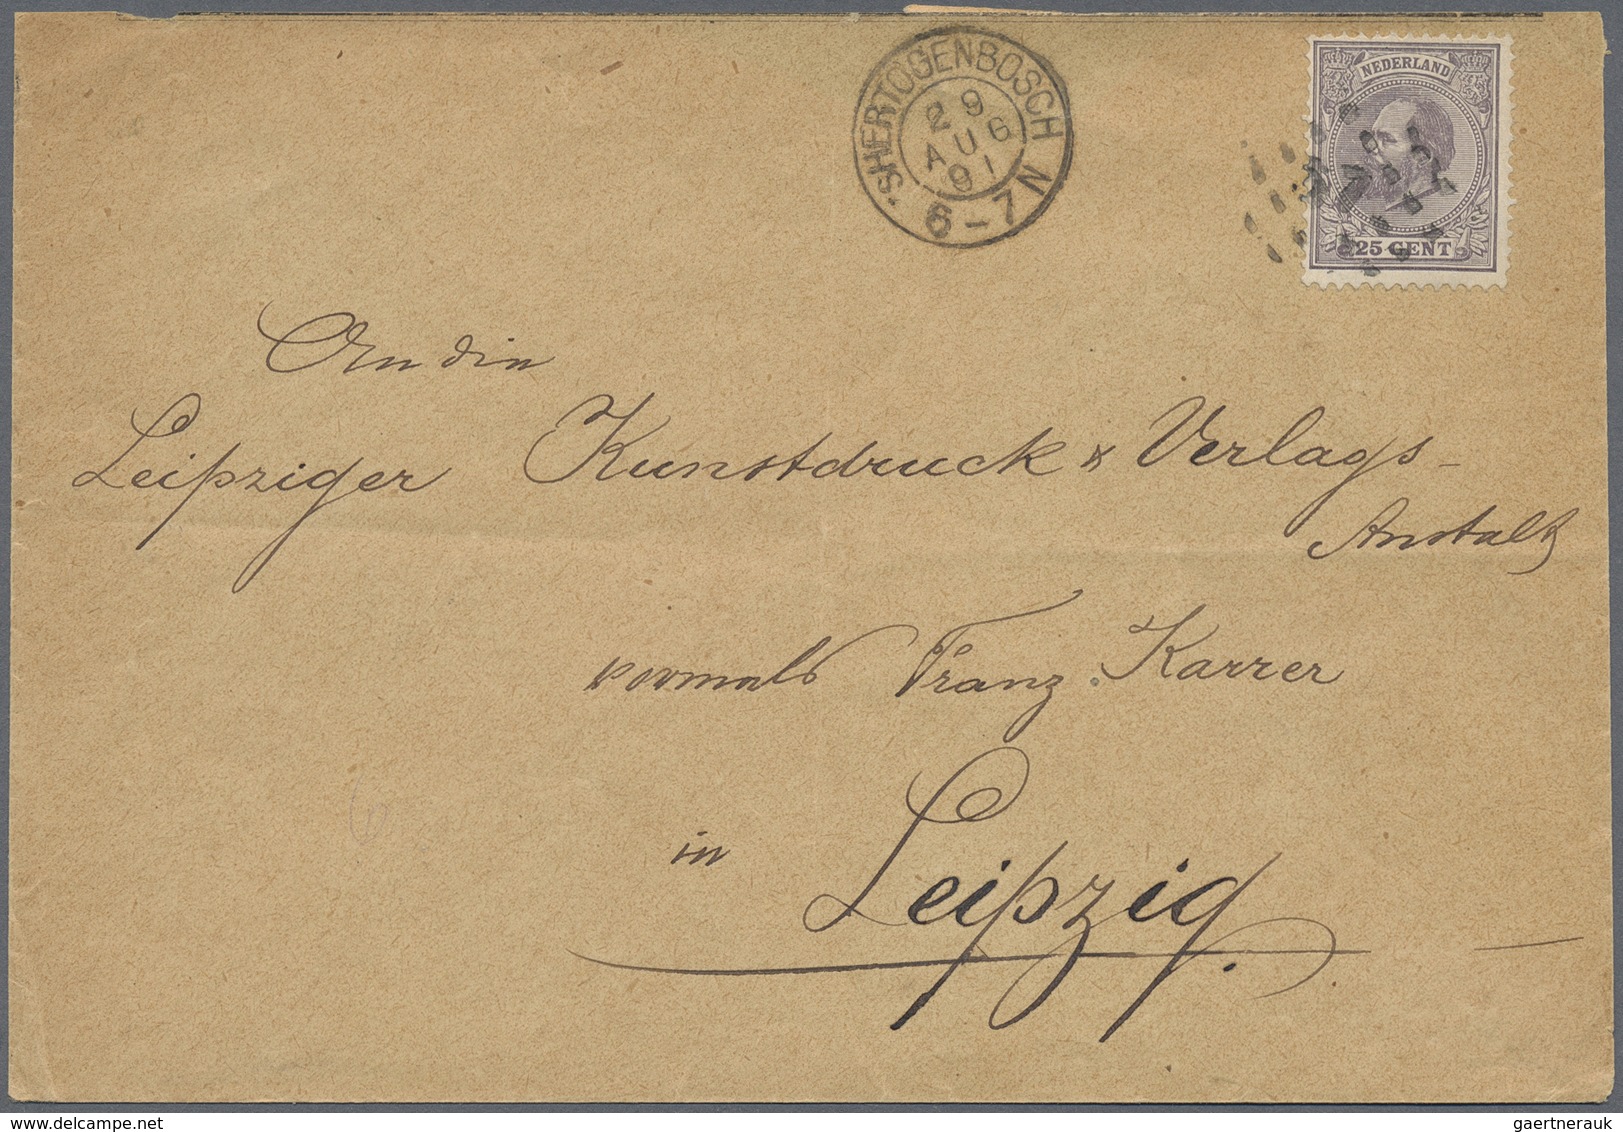 'SHERTOGENBOSCH
29
AUG
91
6-7 N
NEDERLAND
25 CENT
An die
Leipziger Kunstdruck & Verlags-
Anstalt
vormals Franz Karrer
in
Leipzig.
gaertnerauk@delcampe.net